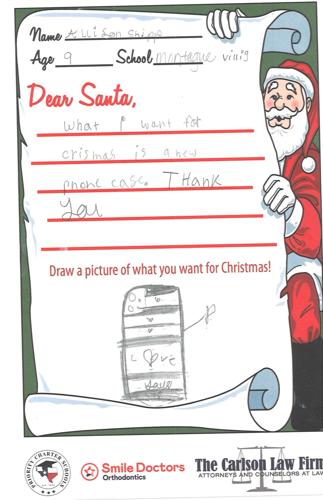 Name Allison Shipp
Age 9 School Montague villig
Dear Santa,
What I want for
crismas is a new
phone case. THank
you
Draw a picture of what you want for Christmas!
Love
PRIORITY CHARTER SCHOOLS
Smile Doctors
Orthodontics
The Carlson Law Firm
ATTORNEYS AND COUNSELORS AT LAW